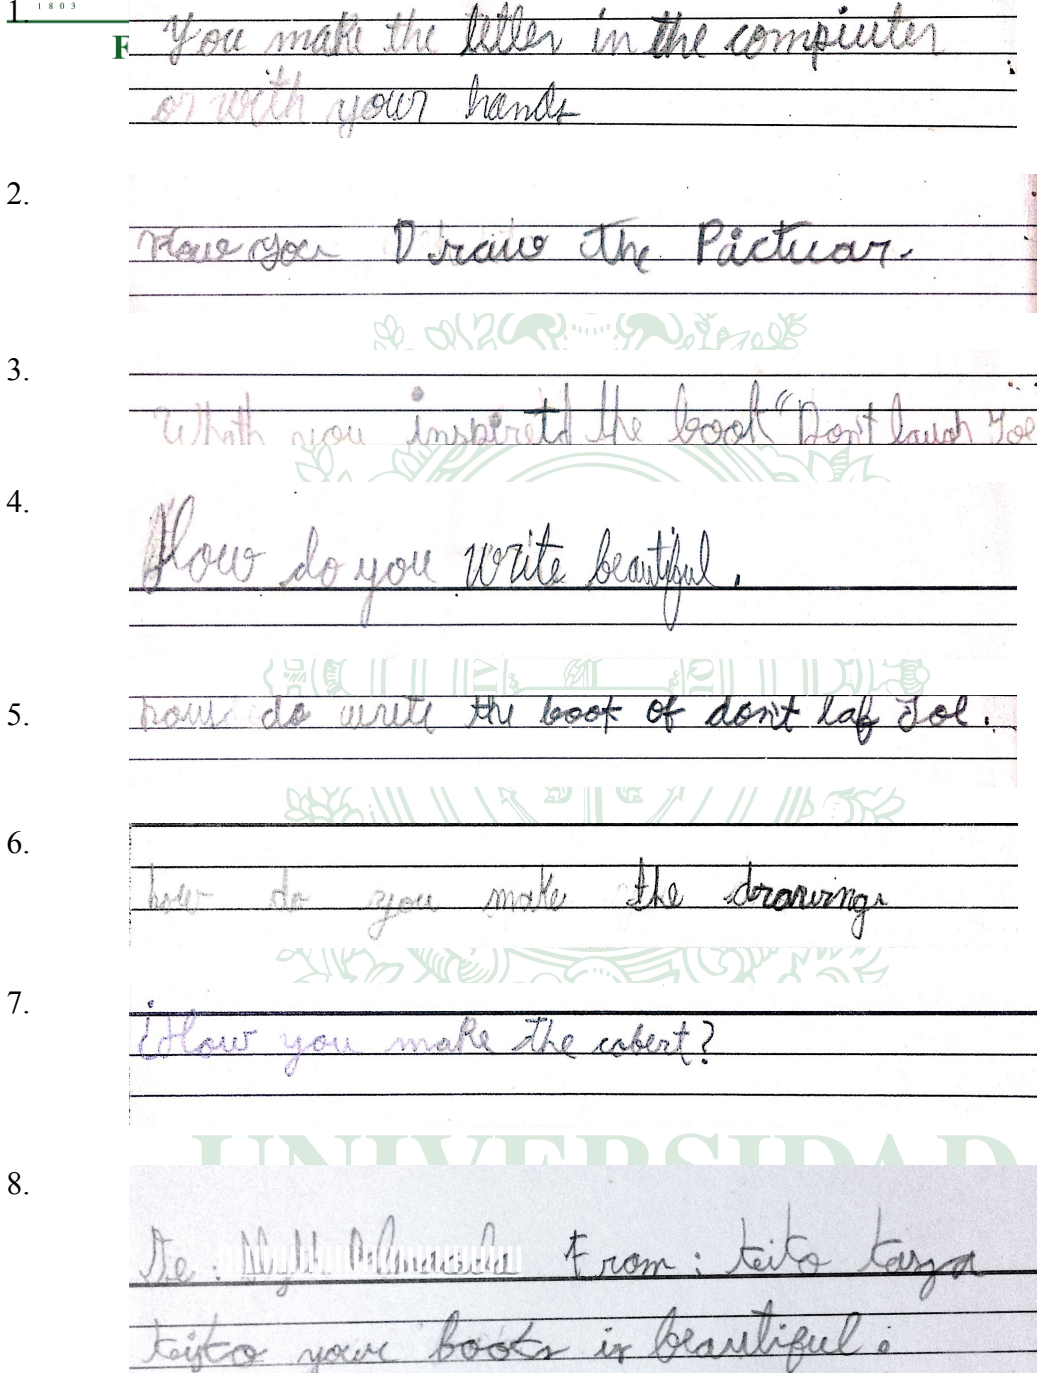 1.
1803
F
You make the letter in the compiuter
or with your hands
2.
How you Draw the Pictuar.
3.
Whath you inspiretd the book "Don't laugh Joe
4.
How do you write beautiful.
5.
how do write the book of don't laf Joe.
6.
how do you make the drawings
7.
¿How you make the cobert?
UNIVERSIDAD
8.
De: From: teito
teito your books is beautiful.